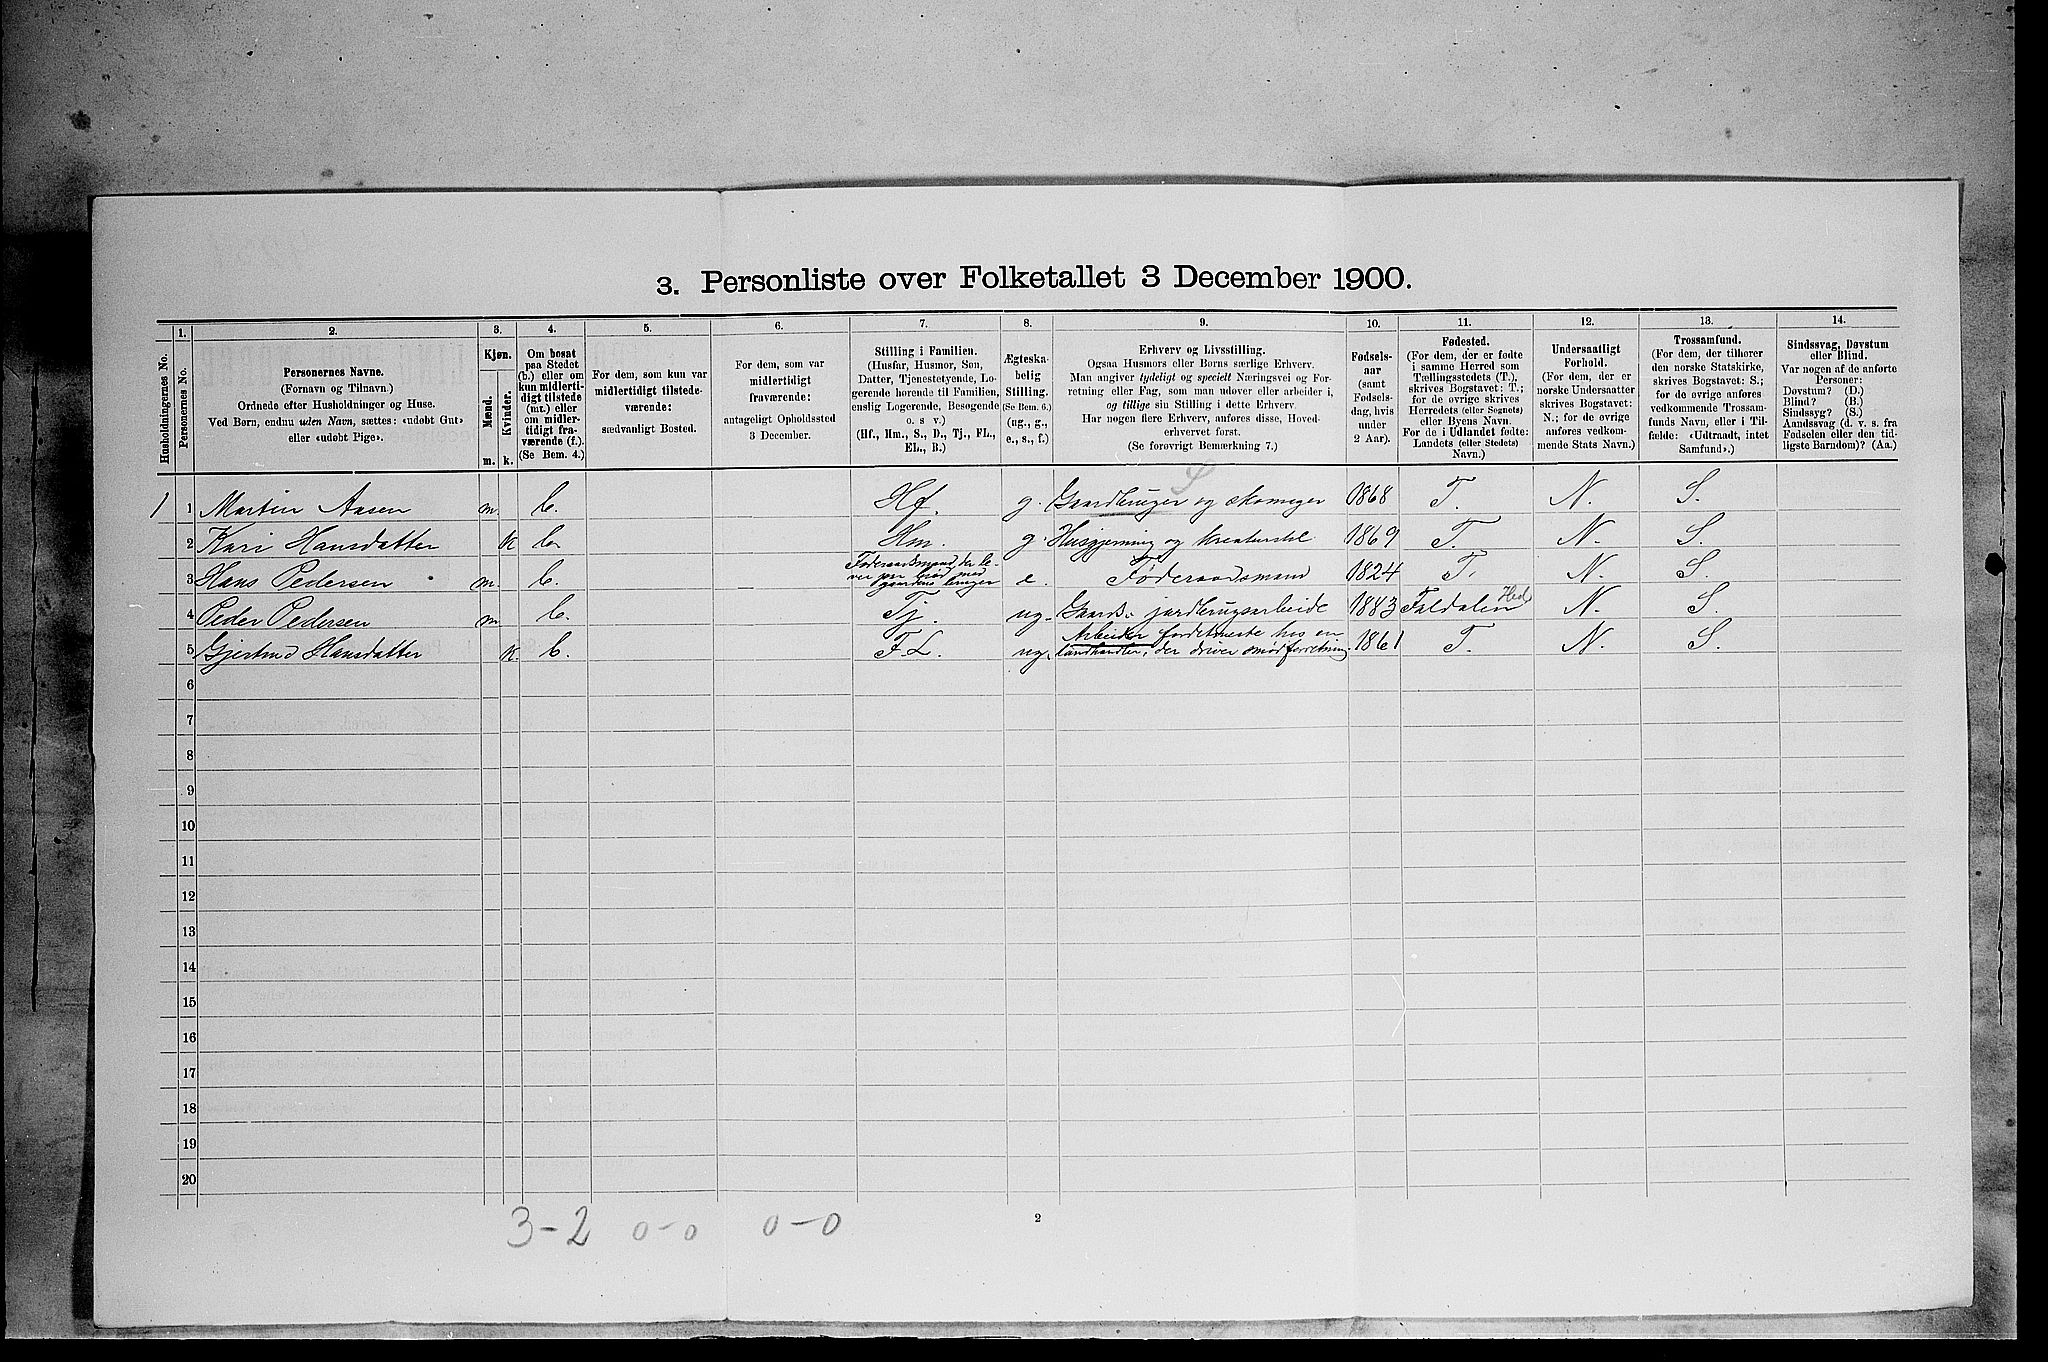 3. Personliste over Folketallet 3 December 1900.
1. 2. 3. 4. 5. 6. 7. 8. 9. 10. 11. 12. 13. 14.
Husholdningernes No.
Personernes No.
Personernes Navne.
(Fornavn og Tilnavn.)
Ordnede efter Husholdninger og Huse.
Ved Børn, endnu uden Navn, sættes: «udøbt Gut»
eller «udøbt Pige».
Kjøn.
Mænd.
Kvinder.
m. k.
Om bosat
paa Stedet
(b.) eller om
kun midlerti-
digt tilstede
(mt.) eller
om midler-
tidigt fra-
værende (f.).
(Se Bem. 4.)
For dem, som kun var
midlertidigt tilstede-
værende:
sædvanligt Bosted.
For dem, som var
midlertidigt
fraværende:
antageligt Opholdssted
3 December.
Stilling i Familien.
(Husfar, Husmor, Søn,
Datter, Tjenestetyende, Lo-
gerende hørende til Familien,
enslig Logerende, Besøgende
o. s. v.)
(Hf., Hm., S., D., Tj., FL.,
EL., B.)
Ægteska-
belig
Stilling.
(Se Bem. 6.)
(ug., g.,
e., s., f.)
Erhverv og Livsstilling.
Ogsaa Husmors eller Børns særlige Erhverv.
Man angiver tydeligt og specielt Næringsvei og For-
retning eller Fag, som man udøver eller arbeider i,
og tillige sin Stilling i dette Erhverv.
Har nogen flere Erhverv, anføres disse, Hoved-
erhvervet først.
(Se forøvrigt Bemærkning 7.)
Fødsels-
aar
(samt
Fødsels-
dag, hvis
under
2 Aar).
Fødested.
(For dem, der er fødte
i samme Herred som
Tællingsstedets (T.),
skrives Bogstavet: T.;
for de øvrige skrives
Herredets (eller Sognets)
eller Byens Navn.
For de i Udlandet fødte:
Landets (eller Stedets)
Navn.)
Undersaatligt
Forhold.
(For dem, der er
norske Undersaatter
skrives Bogstavet:
N.; for de øvrige
anføres vedkom-
mende Stats Navn.)
Trossamfund.
(For dem, der tilhører
den norske Statskirke,
skrives Bogstavet: S.;
for de øvrige anføres
vedkommende Trossam-
funds Navn, eller i Til-
fælde: «Udtraadt, intet
Samfund».)
Sindssvag, Døvstum
eller Blind.
Var nogen af de anførte
Personer:
Døvstum? (D.)
Blind? (B.)
Sindssyg? (S.)
Aandssvag (d. v. s. fra
Fødselen eller den tid-
ligste Barndom)? (Aa.)
S
1 1 Martin Aasen m. b. Hf. g. Gaardbruger og skomager 1868 T. N. S.
2 Kari Hansdatter k b. Hm. g. Husgjerning og kreaturstel 1869 T. N. S.
3 Hans Pedersen m. b. Føderaadsmand, der le-
ver par brød med
gaardens bruger e. Føderaadsmand 1824 T. N. S.
4 Peder Pedersen m b. Tj. ug. Gaards- jordbrugsarbeide 1883 Faldalen Hed. N. S.
5 Gjertrud Hansdatter k. b. F.L. ug. Arbeider fordetmeste hos en
landhandler, der driver smørforretning. 1861 T. N. S.
6
7
8
9
10
11
12
13
14
15
16
17
18
19
20
3-2 0-0 0-0
2